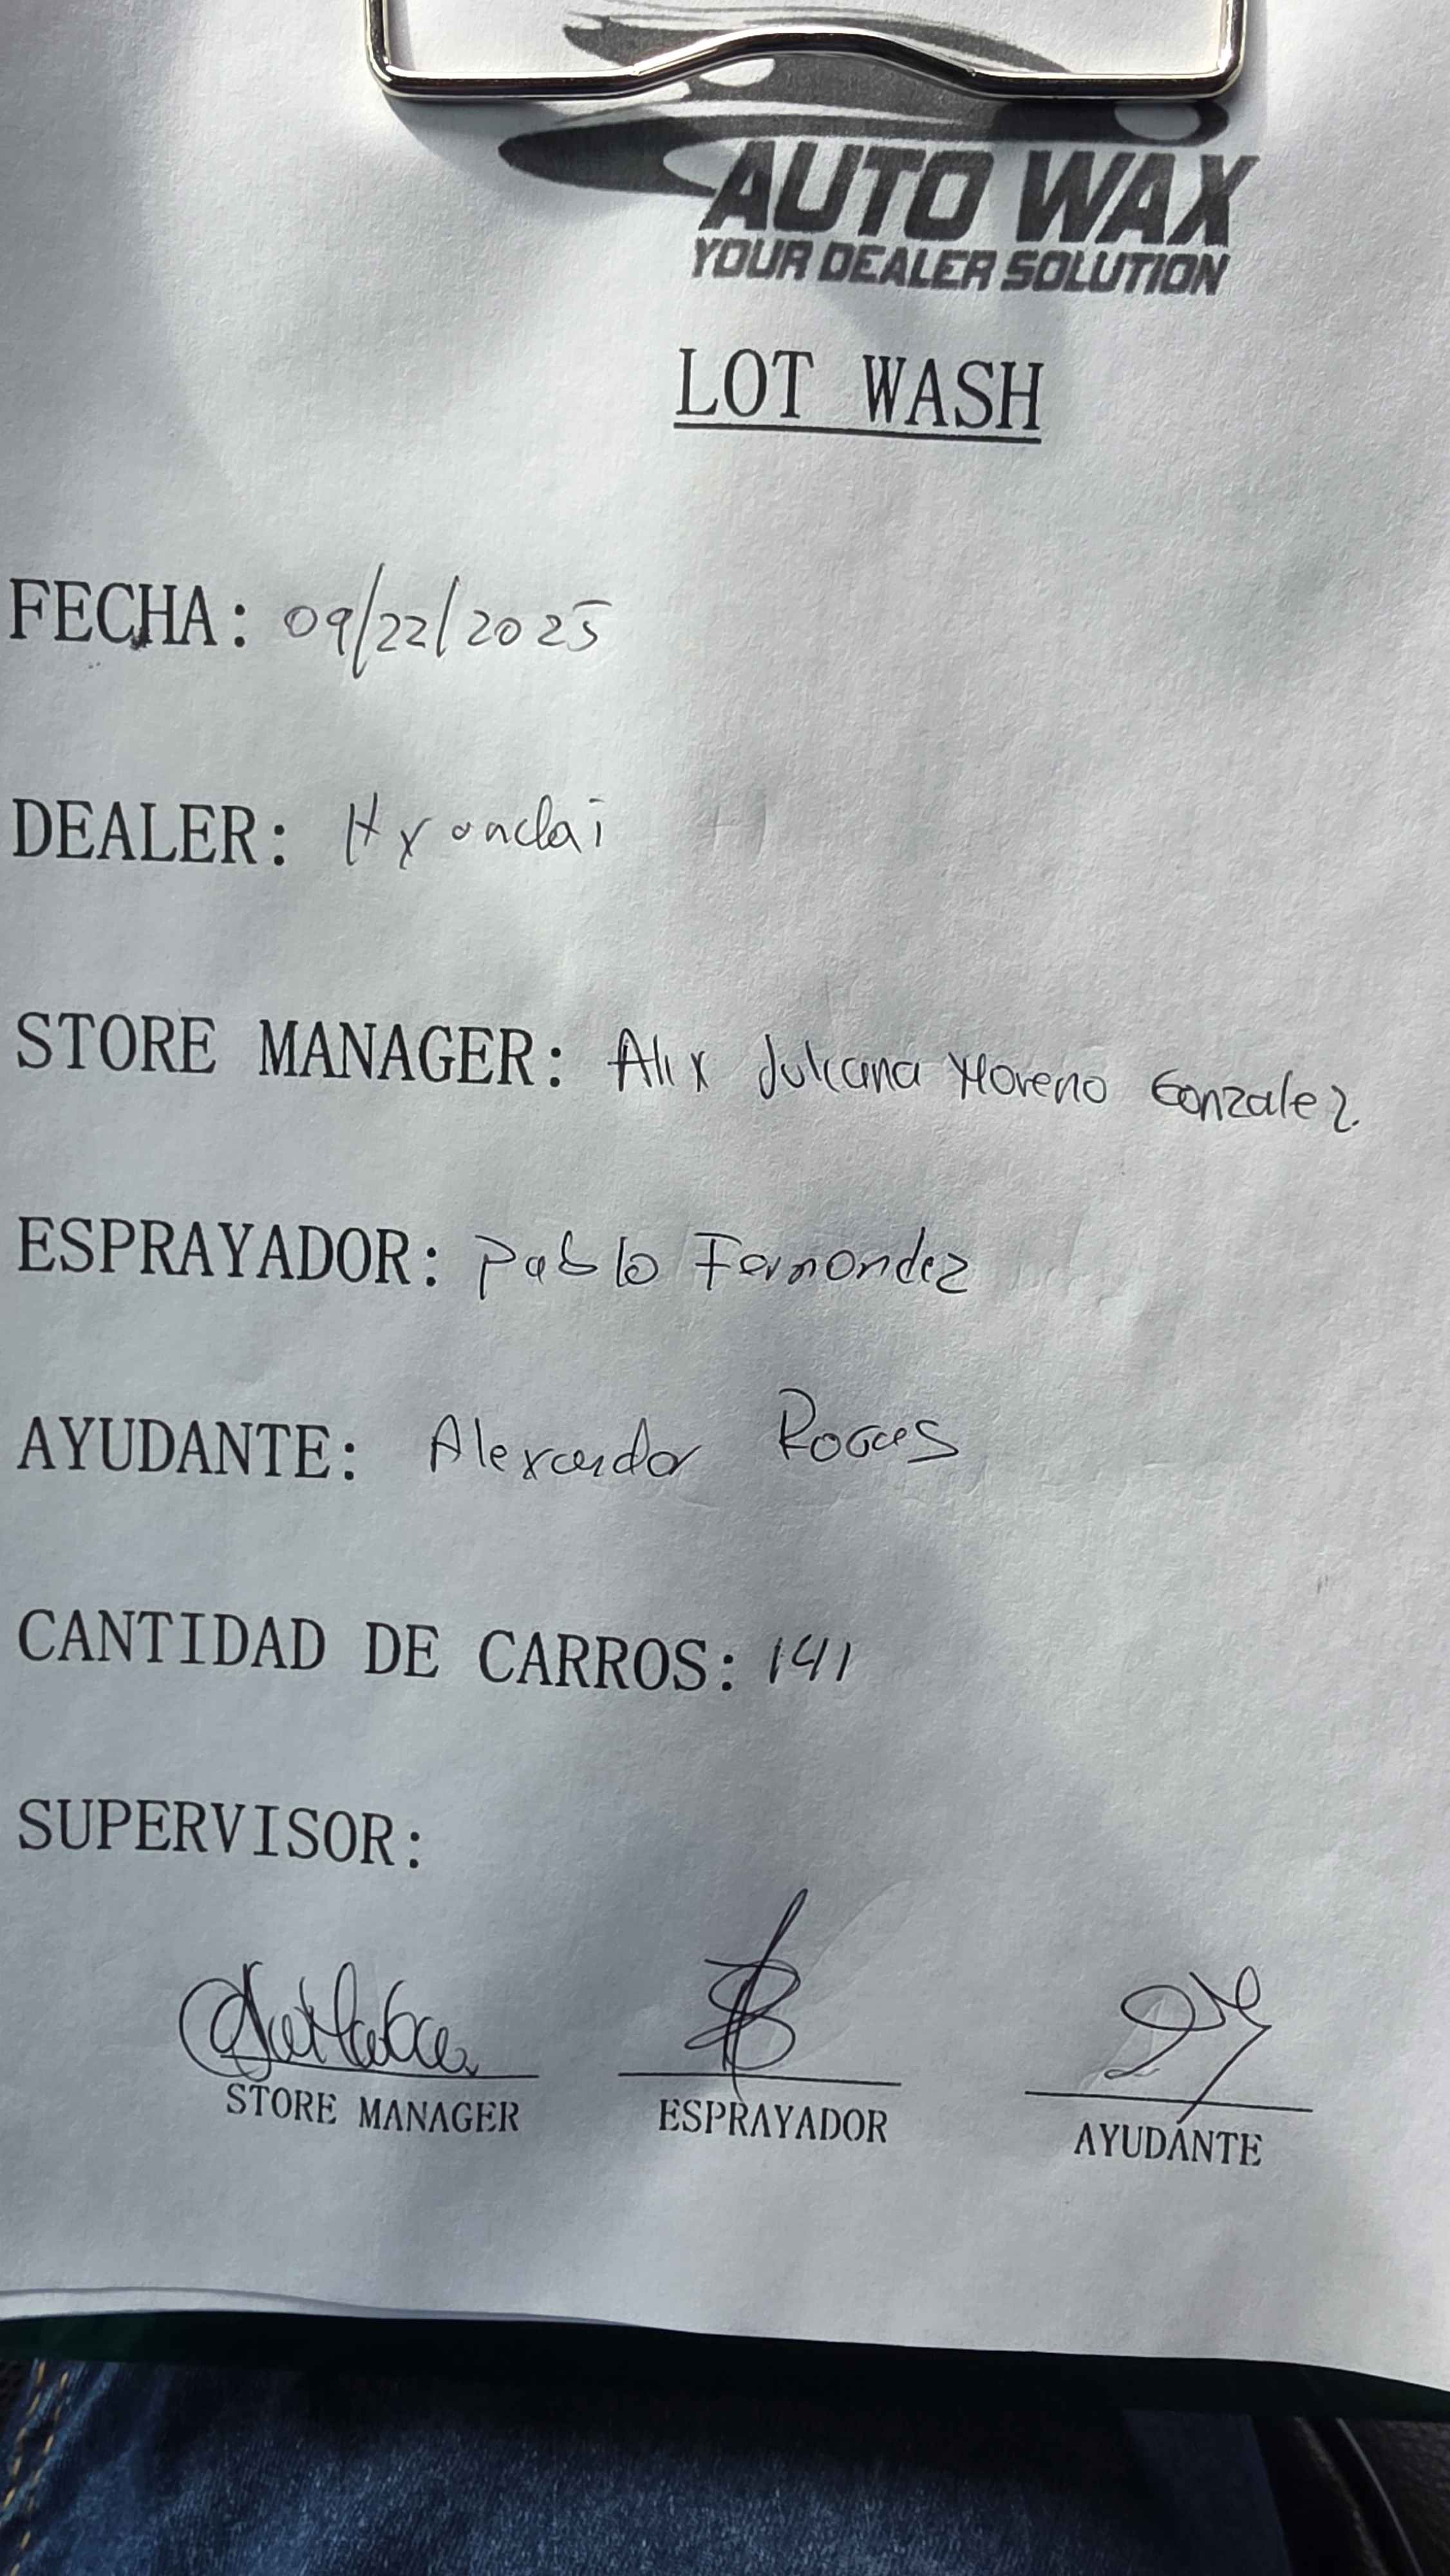 AUTO WAX
YOUR DEALER SOLUTION
LOT WASH
FECHA: 09/22/2025
DEALER: Hyondai
STORE MANAGER: Alix Juliana Moreno Gonzalez.
ESPRAYADOR: Pablo Fernondez
AYUDANTE: Alexander
CANTIDAD DE CARROS: 141
SUPERVISOR:
STORE MANAGER ESPRAYADOR AYUDANTE